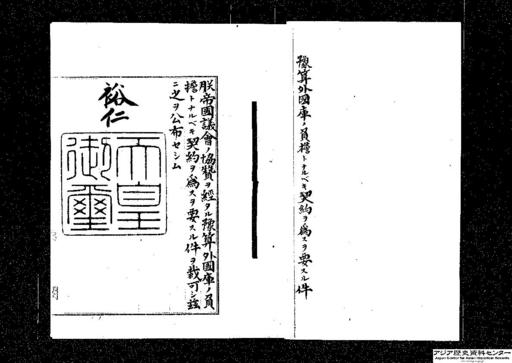 豫算外國庫ノ負擔トナルベキ契約ヲ爲スヲ要スル件
朕帝國議會ノ協贊ヲ經タル豫算外國庫ノ負
擔トナルベキ契約ヲ爲スヲ要スル件ヲ裁可シ茲
ニ之ヲ公布セシム
裕仁
天皇
御璽
アジア歴史資料センター
Japan Center for Asian Historical Records